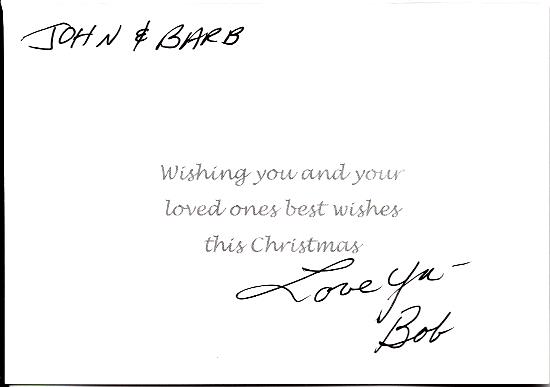 JOHN & BARB
Wishing you and your
loved ones best wishes
this Christmas
Love Ya -
Bob